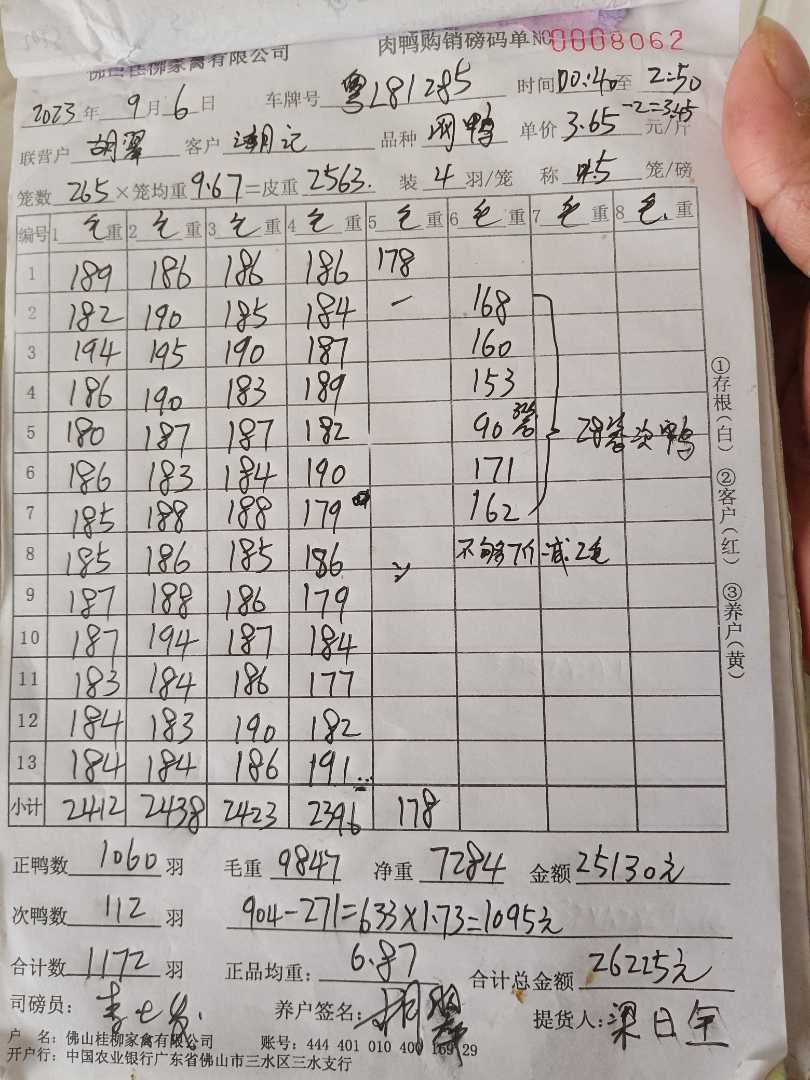 佛山桂柳家禽有限公司 肉鸭购销磅码单 NO 0008062
2023年9月6日 车牌号 粤L81285 时间 00:40至2:50
联营户 胡翠 客户 潮记 品种 网鸭 单价 3.65-2=3.45 元/斤
笼数 265×笼均重9.67=皮重2563. 装4羽/笼 称5笼/磅
编号 1毛重 2毛重 3毛重 4毛重 5毛重 6毛重 7毛重 8毛重
1 189 186 186 186 178
2 182 190 185 184 — 168
3 194 195 190 187 160
4 186 190 183 189 153
5 180 187 187 182 90 28笼次鸭
6 186 183 184 190 171
7 185 188 188 179 162
8 185 186 185 186 不够7斤减2毛
9 187 188 186 179
10 187 194 187 184
11 183 184 186 177
12 184 183 190 182
13 184 184 186 191
小计 2412 2438 2423 2396 178
正鸭数 1060 羽 毛重 9847 净重 7284 金额 25130元
次鸭数 112 羽 904-271=633×1.73=1095元
合计数 1172 羽 正品均重: 6.87 合计总金额 26225元
司磅员: 养户签名: 提货人: 梁日全
户 名: 佛山桂柳家禽有限公司 账号: 444 401 010 400 169 29
开户行: 中国农业银行广东省佛山市三水区三水支行
①存根(白) ②客户(红) ③养户(黄)